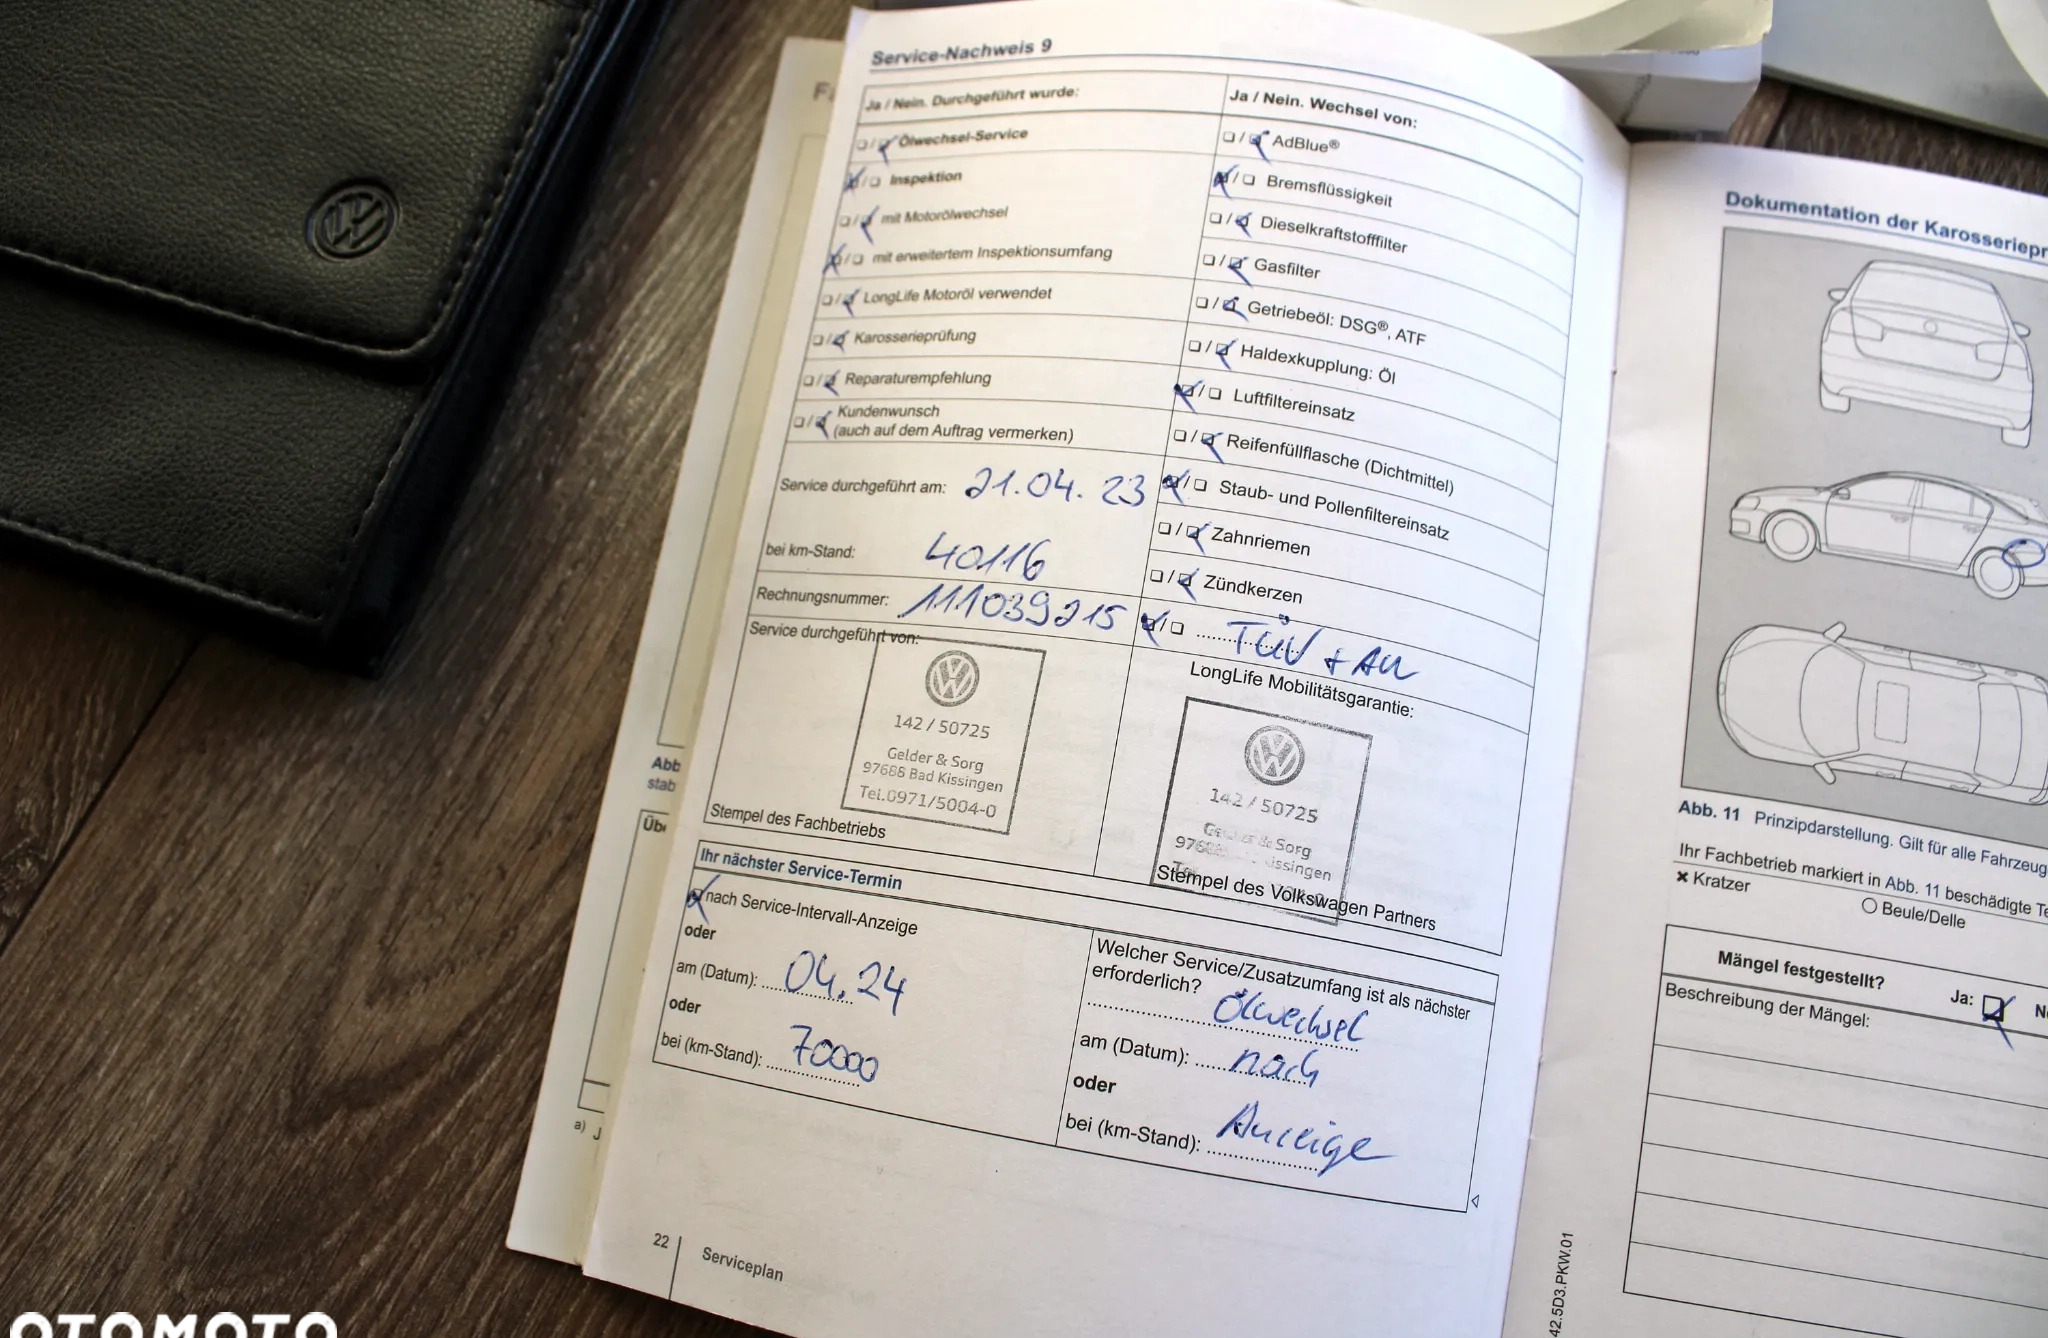 Service-Nachweis 9
Ja / Nein. Durchgeführt wurde:
Ölwechsel-Service
Inspektion
mit Motorölwechsel
mit erweitertem Inspektionsumfang
LongLife Motoröl verwendet
Karosserieprüfung
Reparaturempfehlung
Kundenwunsch
(auch auf dem Auftrag vermerken)
Service durchgeführt am: 21.04.23
bei km-Stand: 40116
Rechnungsnummer: 111039215
Service durchgeführt von:
142 / 50725
Gelder & Sorg
97688 Bad Kissingen
Tel.0971/5004-0
Stempel des Fachbetriebs
Ja / Nein. Wechsel von:
AdBlue®
Bremsflüssigkeit
Dieselkraftstofffilter
Gasfilter
Getriebeöl: DSG®, ATF
Haldexkupplung: Öl
Luftfiltereinsatz
Reifenfüllflasche (Dichtmittel)
Staub- und Pollenfiltereinsatz
Zahnriemen
Zündkerzen
TÜV + AU
LongLife Mobilitätsgarantie:
142 / 50725
& Sorg
issingen
Stempel des Volkswagen Partners
Ihr nächster Service-Termin
nach Service-Intervall-Anzeige
oder
am (Datum): 04.24
oder
bei (km-Stand): 70000
Welcher Service/Zusatzumfang ist als nächster
erforderlich? Ölwechsel
am (Datum): nach
oder
bei (km-Stand): Anzeige
22
Serviceplan
Abb
stab
Übe
a) J
Dokumentation der Karosseriepr
Abb. 11 Prinzipdarstellung. Gilt für alle Fahrzeug
Ihr Fachbetrieb markiert in Abb. 11 beschädigte Te
× Kratzer
O Beule/Delle
Mängel festgestellt?
Ja:
Ne
Beschreibung der Mängel:
42.5D3.PKW.01
OTOMOTO